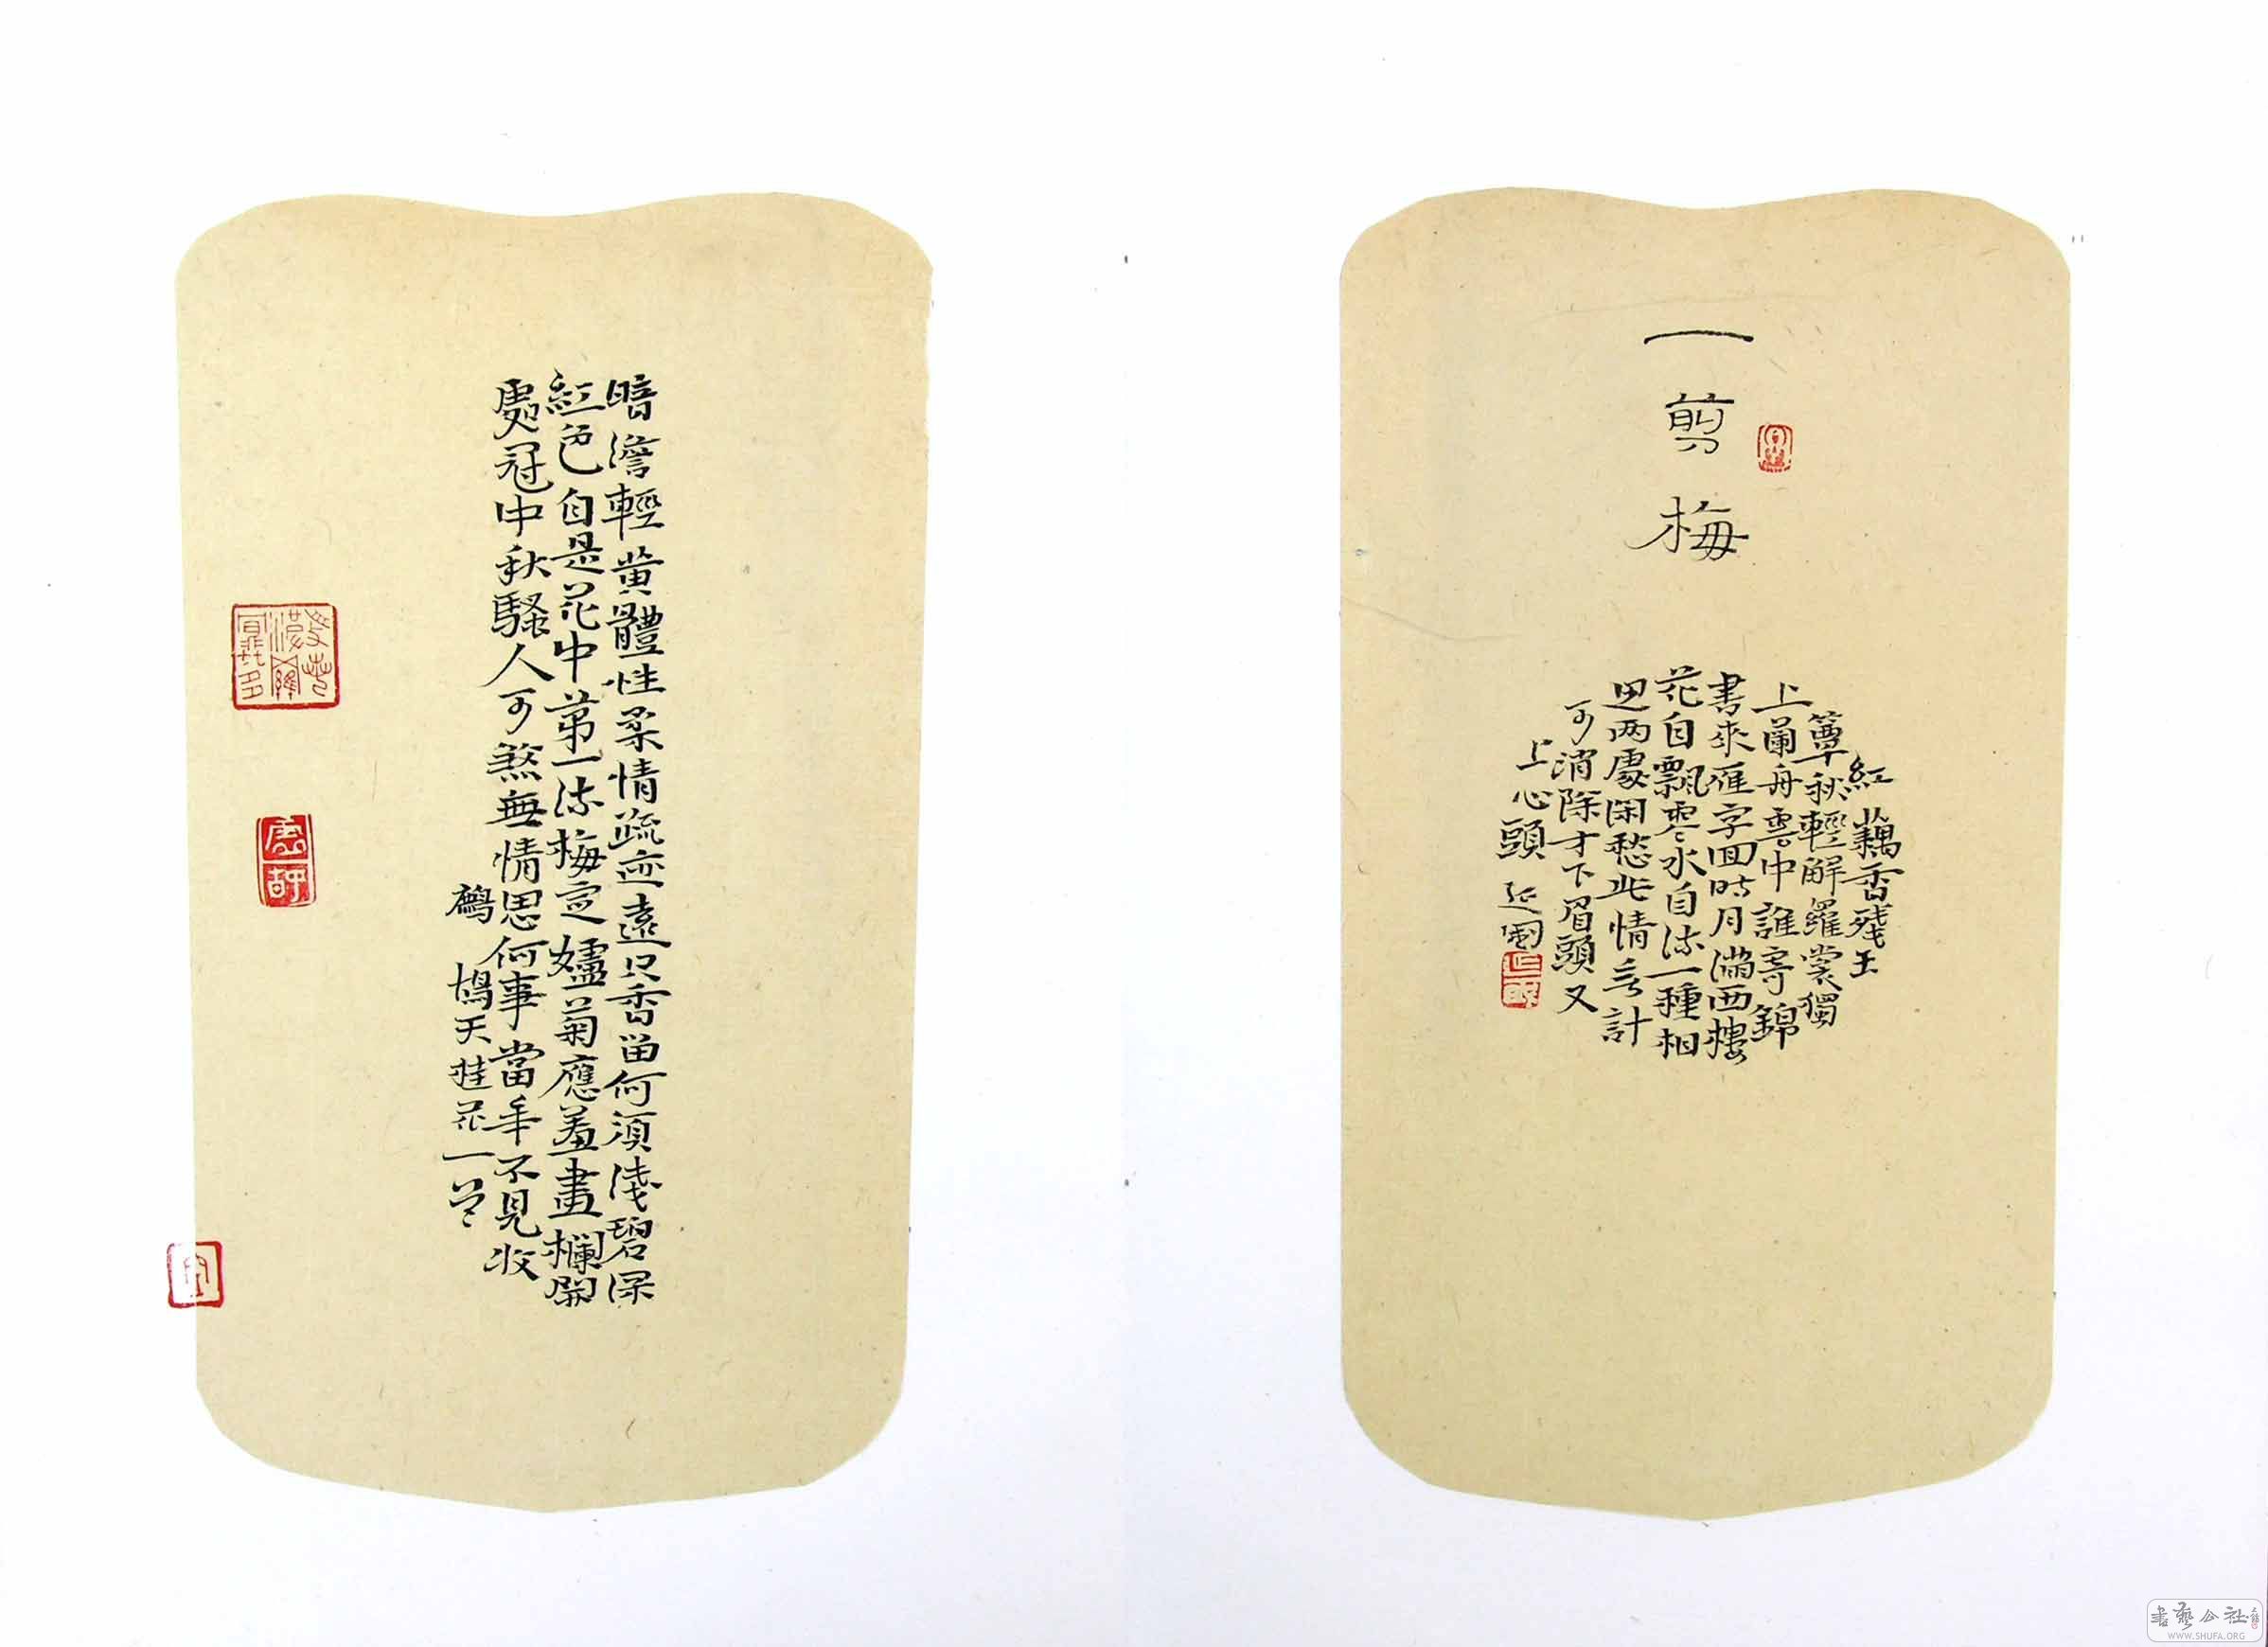 一剪梅
紅藕香殘玉
簟秋輕解羅裳獨
上蘭舟雲中誰寄錦
書來雁字回時月滿西樓
花自飄零水自流一種相
思两處閑愁此情无計
可消除才下眉頭又
上心頭
暗澹輕黄體性柔情疏迹遠只香留何須淺碧深
紅色自是花中第一流梅定妒菊應羞畫欄開
處冠中秋騷人可煞無情思何事當年不見收
鷓鴣天桂花一首
書藝公社
WWW.SHUFA.ORG